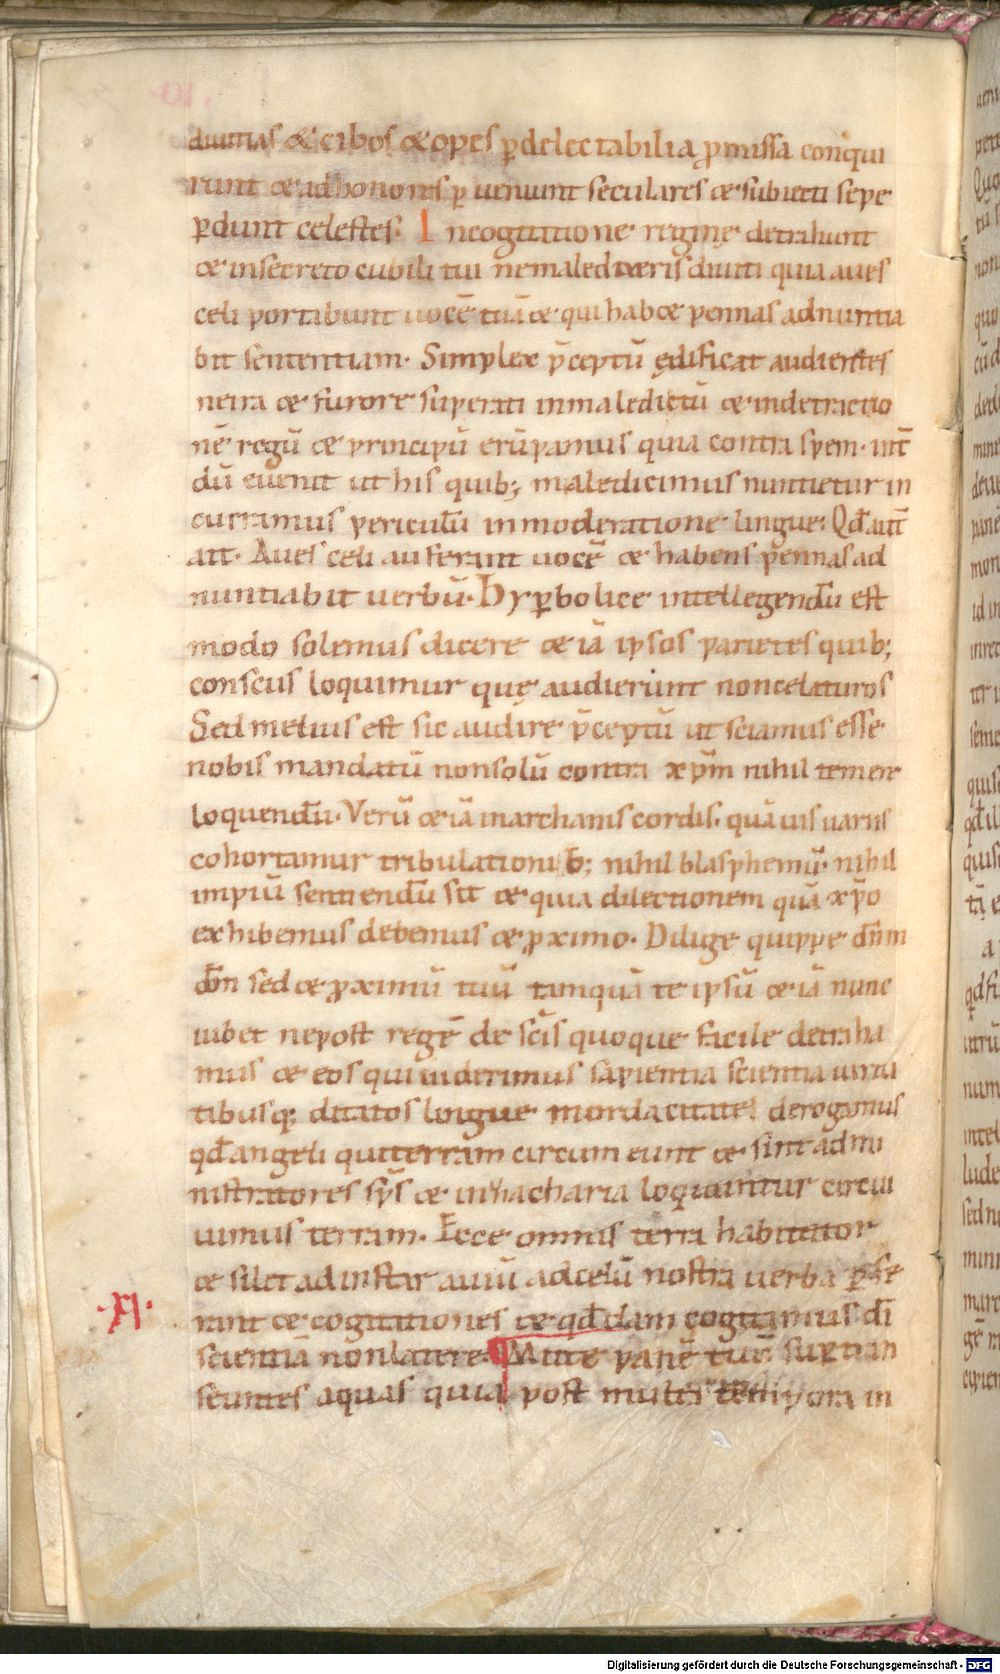 diuitias & cibos & opes p̱delectabilia p̱missa conqui
runt & adhonores p̱ueniunt seculares & subiecti sepe
p̱dunt celestes. Incogitatione reginę detrahunt
& insecreto cubili tui nemaledixeris diuiti quia aues
celi portabunt uocē tuā & qui hab& pennas adnuntia
bit sententiam. Simplex p̄ceptū ędificat audientes
neira & furore superati inmaledictū & indetractio
nē regū & principū erūpamus quia contra spem. int̄
dū euenit ut his quib; maledicimus nuntietur in
curramus periculū inmoderatione lingue. Qđ aut̄
ait. Aues celi auferent uocē & habens pennas ad
nuntiabit uerbū. Hyp̱bolice intellegendū est
modo solemus dicere &iā ipsos parietes quib;
consciis loquimur quę audierint noncelaturos
Sed melius est sic audire p̄ceptū ut sciamus esse
nobis mandatū nonsolū contra xp̄m nihil temere
loquendū. Verū &iā inarchanis cordis. quāuis uariis
cohortamur tribulationib; nihil blasphemū. nihil
impiū sentiendū sit & quia dilectionem quā xp̄o
exhibemus debemus & p̱ximo. Dilige quippe dn̄m
dm̄ sed & p̱ximū tuū tanquā te ipsū &iā nunc
iubet nepost regē de sc̄is quoque facile detraha
mus & eos qui uiderimus sapientia scientia uirtu
tibusq; ditatos lingue mordacitate derogamus
qđ angeli quiterram circumeunt & sint admi
nistratores sp̄s & inzacharia loquuntur circui
uimus terram. Ecce omnis terra habitator
& silet adinstar auiū adcelū nostra uerba p̱fe
rant & cogitationes & qđ clam cogitamus dī
·XI· scientiā nonlatere. Mitte panē tuū sup̱ tran
seuntes aquas quia post multa tempora in
Digitalisierung gefördert durch die Deutsche Forschungsgemeinschaft - DFG